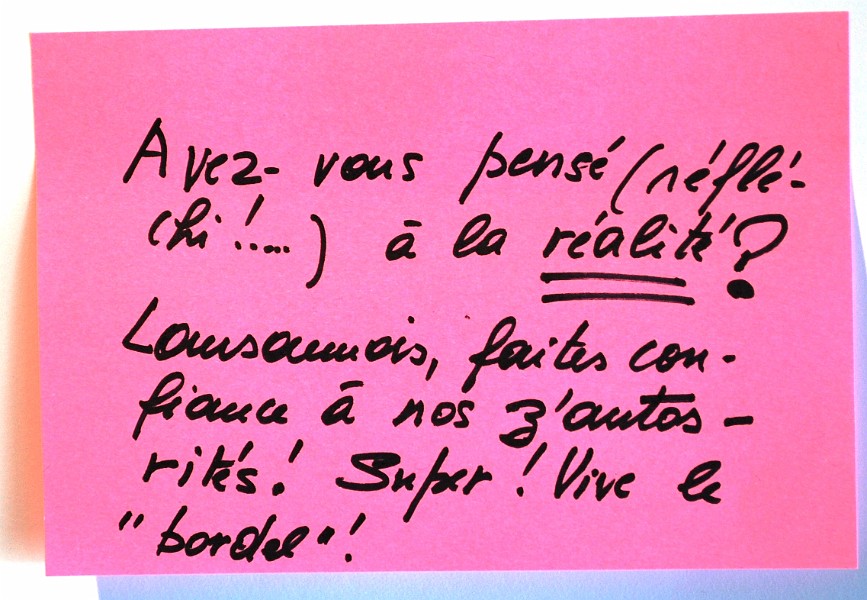 Avez-vous pensé (réflé-
chi !....) à la réalité ?
Lausannois, faites con-
fiance à nos z'auto-
rités ! Super ! Vive le
"bordel" !